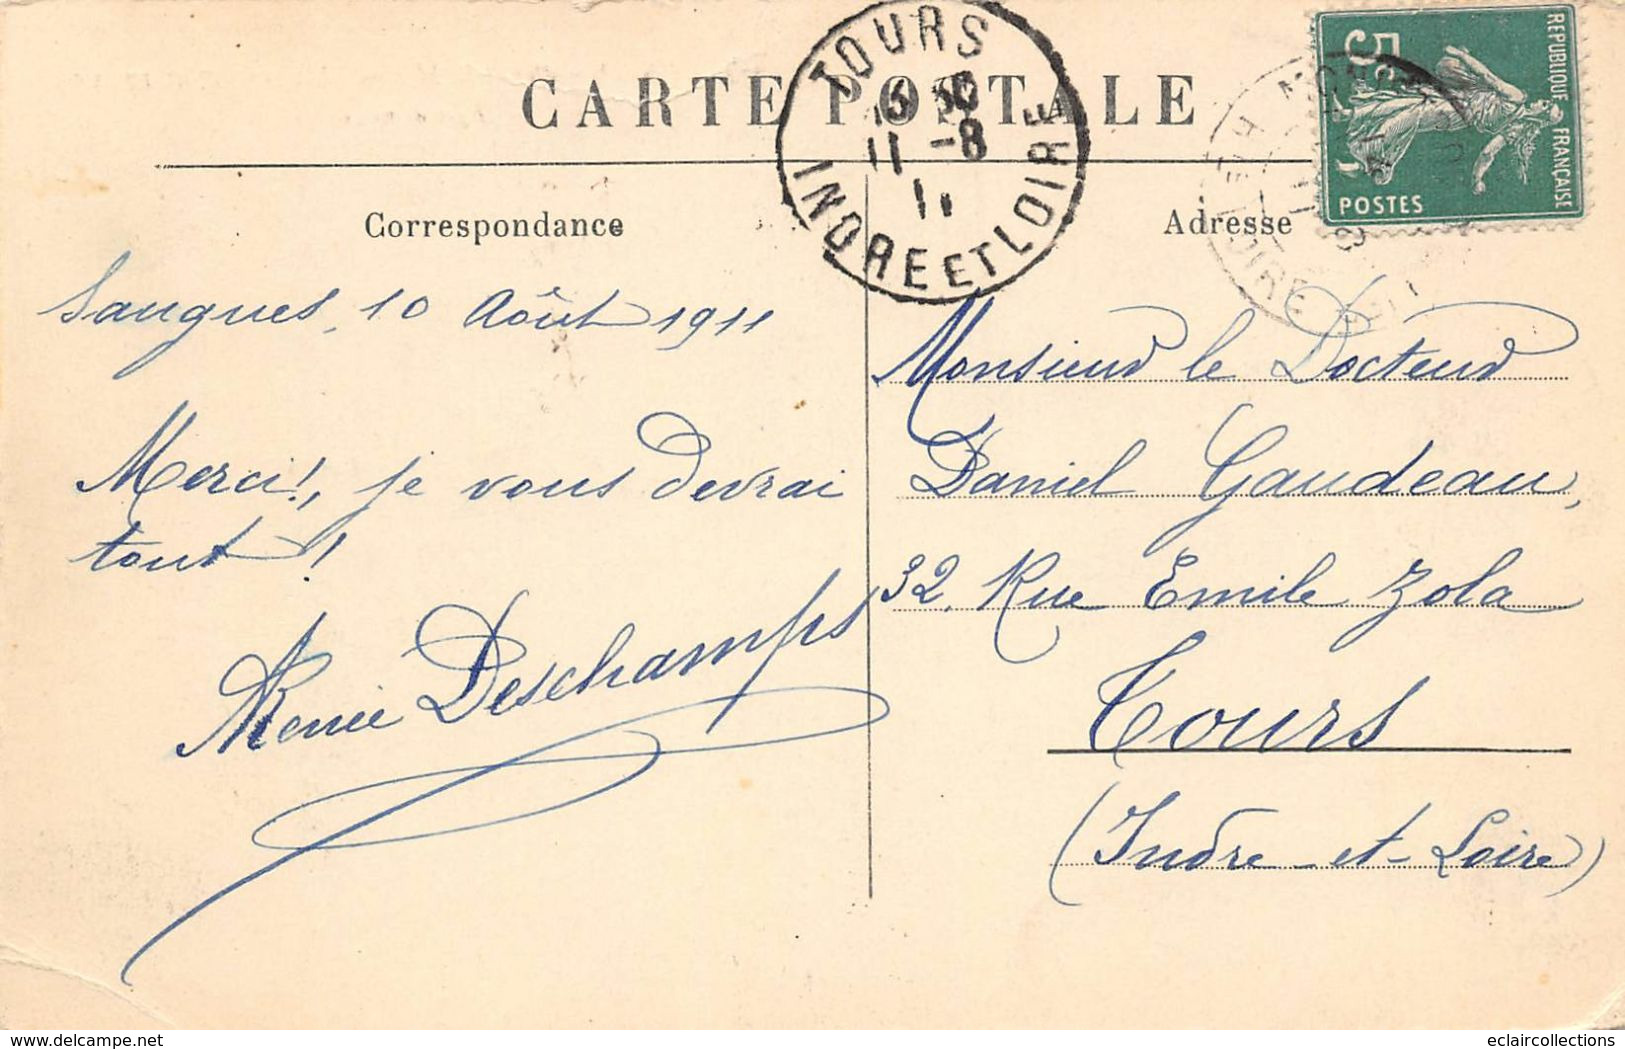 CARTE POSTALE
TOURS
11 -8
11
INDRE ET LOIRE
REPUBLIQUE FRANÇAISE
5c
POSTES
Correspondance
Adresse
Saugues, 10 Août 1911
Merci!, je vous devrai
tout!
Renée Deschamps
Monsieur le Docteur
Daniel Gaudeau,
32, Rue Emile Zola
Tours
(Indre-et-Loire)
eclaircollections